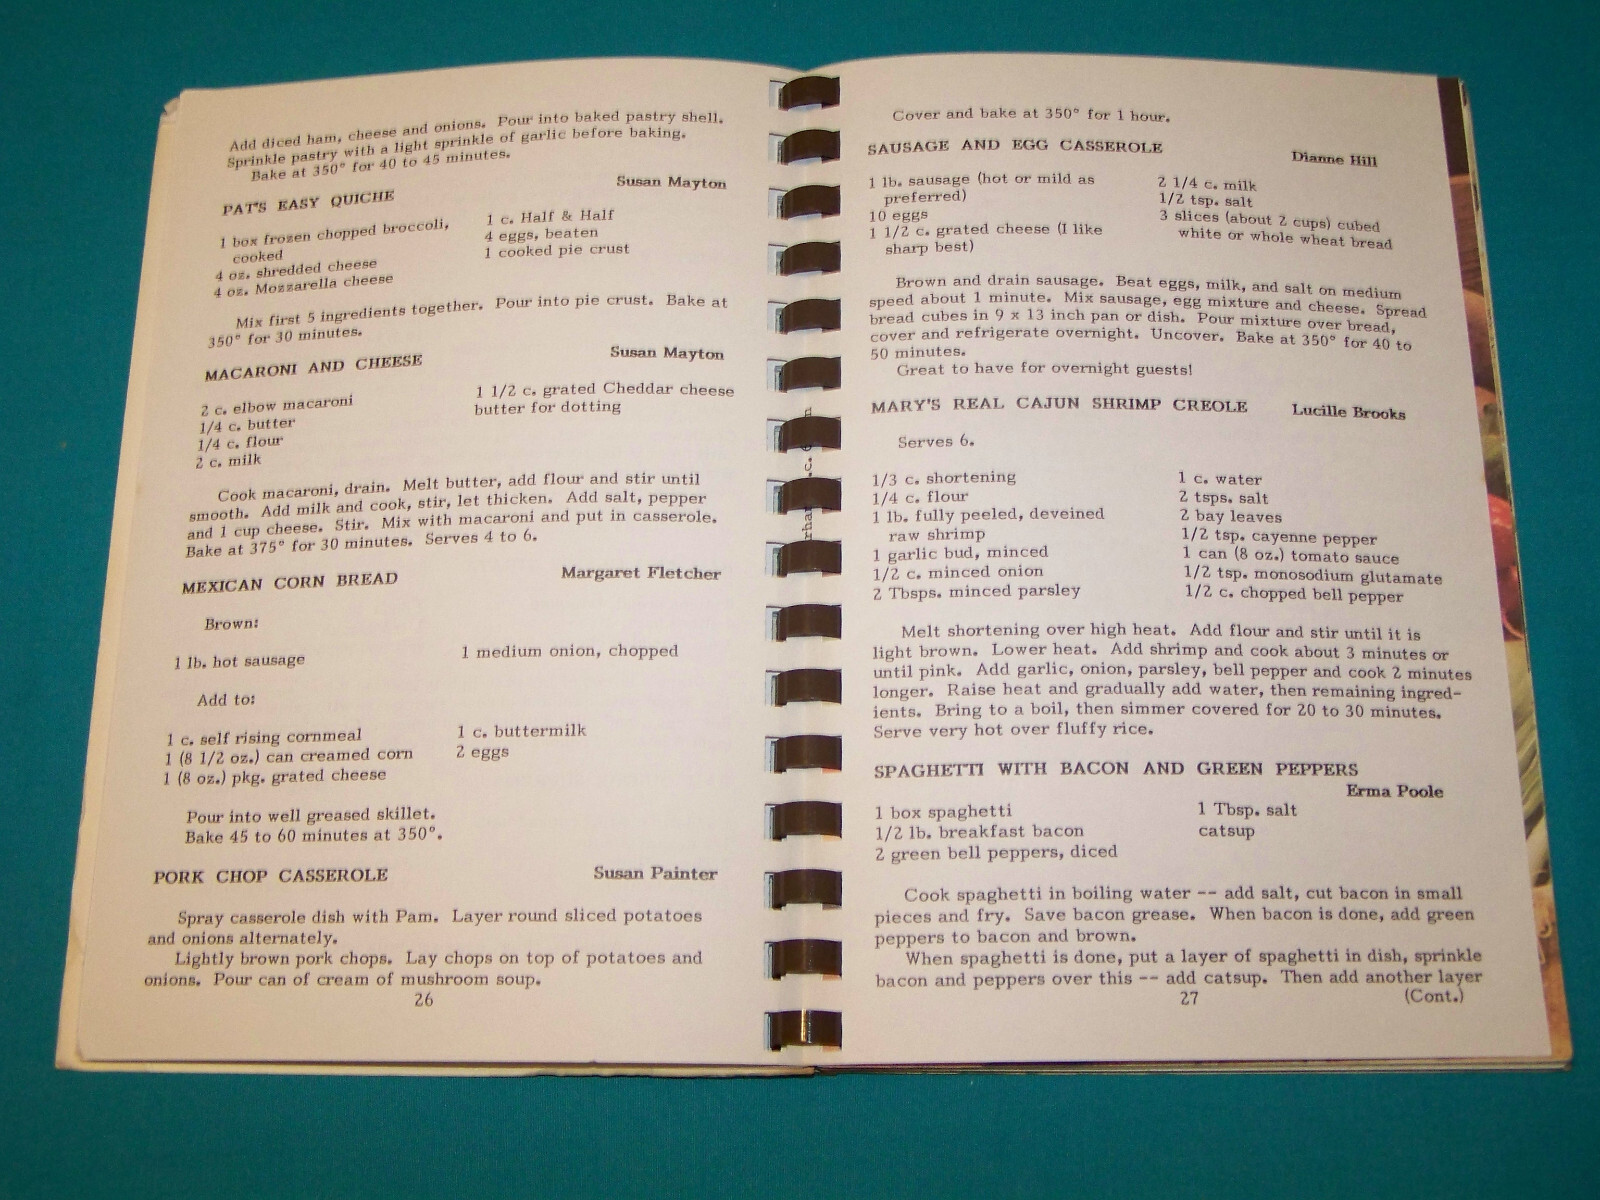 Add diced ham, cheese and onions. Pour into baked pastry shell.
Sprinkle pastry with a light sprinkle of garlic before baking.
Bake at 350° for 40 to 45 minutes.
PAT'S EASY QUICHE Susan Mayton
1 box frozen chopped broccoli,
cooked
4 oz. shredded cheese
4 oz. Mozzarella cheese
1 c. Half & Half
4 eggs, beaten
1 cooked pie crust
Mix first 5 ingredients together. Pour into pie crust. Bake at
350° for 30 minutes.
MACARONI AND CHEESE Susan Mayton
2 c. elbow macaroni
1/4 c. butter
1/4 c. flour
2 c. milk
1 1/2 c. grated Cheddar cheese
butter for dotting
Cook macaroni, drain. Melt butter, add flour and stir until
smooth. Add milk and cook, stir, let thicken. Add salt, pepper
and 1 cup cheese. Stir. Mix with macaroni and put in casserole.
Bake at 375° for 30 minutes. Serves 4 to 6.
MEXICAN CORN BREAD Margaret Fletcher
Brown:
1 lb. hot sausage 1 medium onion, chopped
Add to:
1 c. self rising cornmeal
1 (8 1/2 oz.) can creamed corn
1 (8 oz.) pkg. grated cheese
1 c. buttermilk
2 eggs
Pour into well greased skillet.
Bake 45 to 60 minutes at 350°.
PORK CHOP CASSEROLE Susan Painter
Spray casserole dish with Pam. Layer round sliced potatoes
and onions alternately.
Lightly brown pork chops. Lay chops on top of potatoes and
onions. Pour can of cream of mushroom soup.
26
Cover and bake at 350° for 1 hour.
SAUSAGE AND EGG CASSEROLE Dianne Hill
1 lb. sausage (hot or mild as
preferred)
10 eggs
1 1/2 c. grated cheese (I like
sharp best)
2 1/4 c. milk
1/2 tsp. salt
3 slices (about 2 cups) cubed
white or whole wheat bread
Brown and drain sausage. Beat eggs, milk, and salt on medium
speed about 1 minute. Mix sausage, egg mixture and cheese. Spread
bread cubes in 9 x 13 inch pan or dish. Pour mixture over bread,
cover and refrigerate overnight. Uncover. Bake at 350° for 40 to
50 minutes.
Great to have for overnight guests!
MARY'S REAL CAJUN SHRIMP CREOLE Lucille Brooks
Serves 6.
1/3 c. shortening
1/4 c. flour
1 lb. fully peeled, deveined
raw shrimp
1 garlic bud, minced
1/2 c. minced onion
2 Tbsps. minced parsley
1 c. water
2 tsps. salt
2 bay leaves
1/2 tsp. cayenne pepper
1 can (8 oz.) tomato sauce
1/2 tsp. monosodium glutamate
1/2 c. chopped bell pepper
Melt shortening over high heat. Add flour and stir until it is
light brown. Lower heat. Add shrimp and cook about 3 minutes or
until pink. Add garlic, onion, parsley, bell pepper and cook 2 minutes
longer. Raise heat and gradually add water, then remaining ingred-
ients. Bring to a boil, then simmer covered for 20 to 30 minutes.
Serve very hot over fluffy rice.
SPAGHETTI WITH BACON AND GREEN PEPPERS
Erma Poole
1 box spaghetti
1/2 lb. breakfast bacon
2 green bell peppers, diced
1 Tbsp. salt
catsup
Cook spaghetti in boiling water -- add salt, cut bacon in small
pieces and fry. Save bacon grease. When bacon is done, add green
peppers to bacon and brown.
When spaghetti is done, put a layer of spaghetti in dish, sprinkle
bacon and peppers over this -- add catsup. Then add another layer
27 (Cont.)